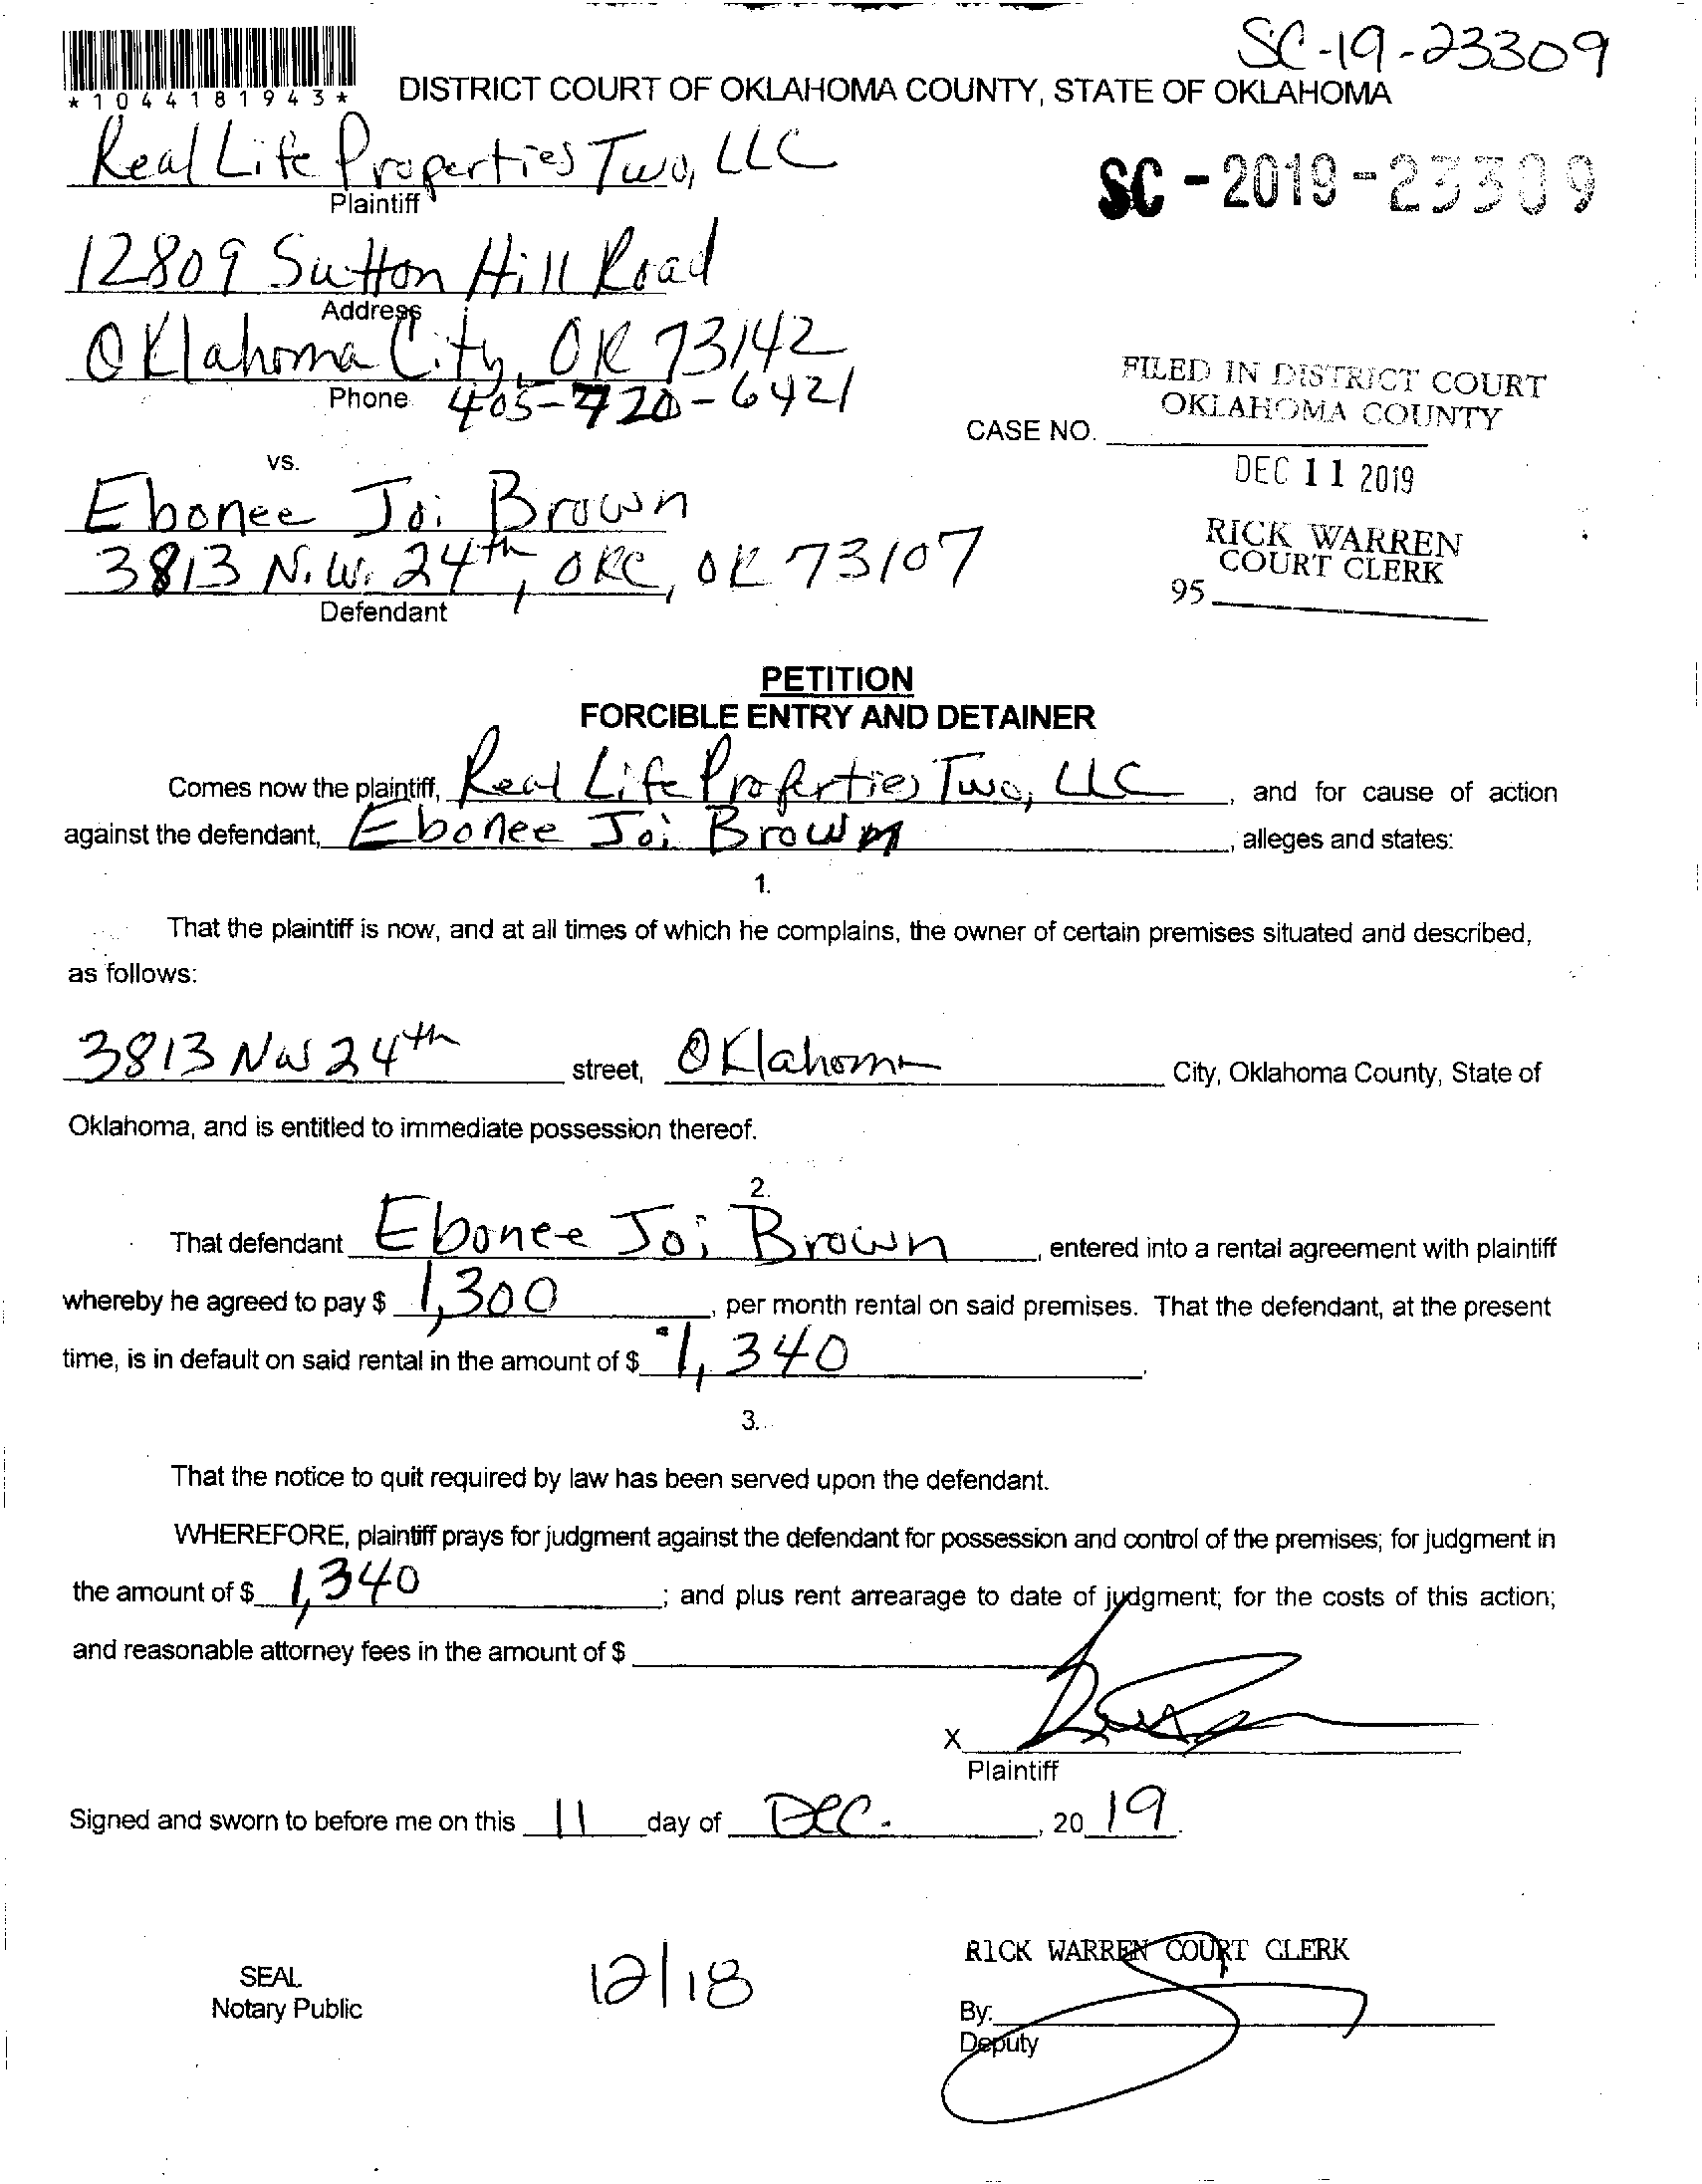 SC-19-23309
*1044181943*
DISTRICT COURT OF OKLAHOMA COUNTY, STATE OF OKLAHOMA
Real Life Properties Two, LLC
Plaintiff
SC-2019-23309
12809 Sutton Hill Road
Address
Oklahoma City, OK 73142
Phone 405-720-6421
FILED IN DISTRICT COURT
OKLAHOMA COUNTY
CASE NO.
DEC 11 2019
vs.
Ebonee Joi Brown
RICK WARREN
COURT CLERK
3813 N.W. 24th, OKC, OK 73107
95
Defendant
PETITION
FORCIBLE ENTRY AND DETAINER
Comes now the plaintiff, Real Life Properties Two, LLC, and for cause of action
against the defendant, Ebonee Joi Brown, alleges and states:
1.
That the plaintiff is now, and at all times of which he complains, the owner of certain premises situated and described,
as follows:
3813 NW 24th street, Oklahoma City, Oklahoma County, State of
Oklahoma, and is entitled to immediate possession thereof.
2.
That defendant Ebonee Joi Brown, entered into a rental agreement with plaintiff
whereby he agreed to pay $ 1,300, per month rental on said premises. That the defendant, at the present
time, is in default on said rental in the amount of $ 1,340.
3.
That the notice to quit required by law has been served upon the defendant.
WHEREFORE, plaintiff prays for judgment against the defendant for possession and control of the premises; for judgment in
the amount of $ 1,340; and plus rent arrearage to date of judgment; for the costs of this action;
and reasonable attorney fees in the amount of $
X
Plaintiff
Signed and sworn to before me on this 11 day of DEC., 20 19.
RICK WARREN COURT CLERK
SEAL
12/18
Notary Public
By:
Deputy